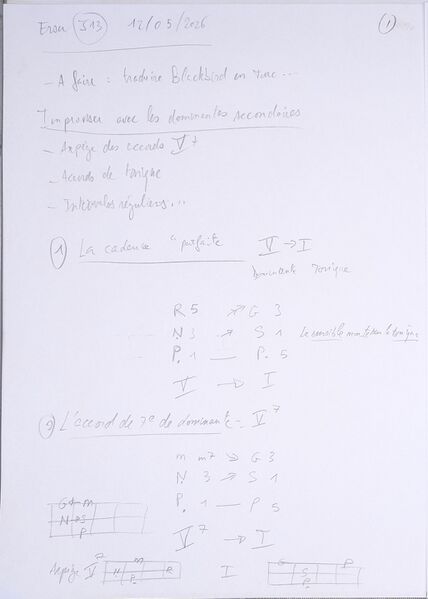 Ersu J13 12/05/2026
1
- A faire : traduire Blackbird en Turc...
Improviser avec les dominantes secondaires
- Arpège des accords V7
- Accords de tonique
- Intervalles réguliers...
1 La cadence "parfaite V → I
Dominante Tonique
R 5 → G 3
N 3 → S 1 La sensible monte sur la tonique
P. 1 — P. 5
V → I
2) L'accord de 7e de dominante = V7
m m7 → G 3
N 3 → S 1
P. 1 — P 5
V7 → I
G← m
N→S
P
Arpège V7 N m P. R I G S P. P